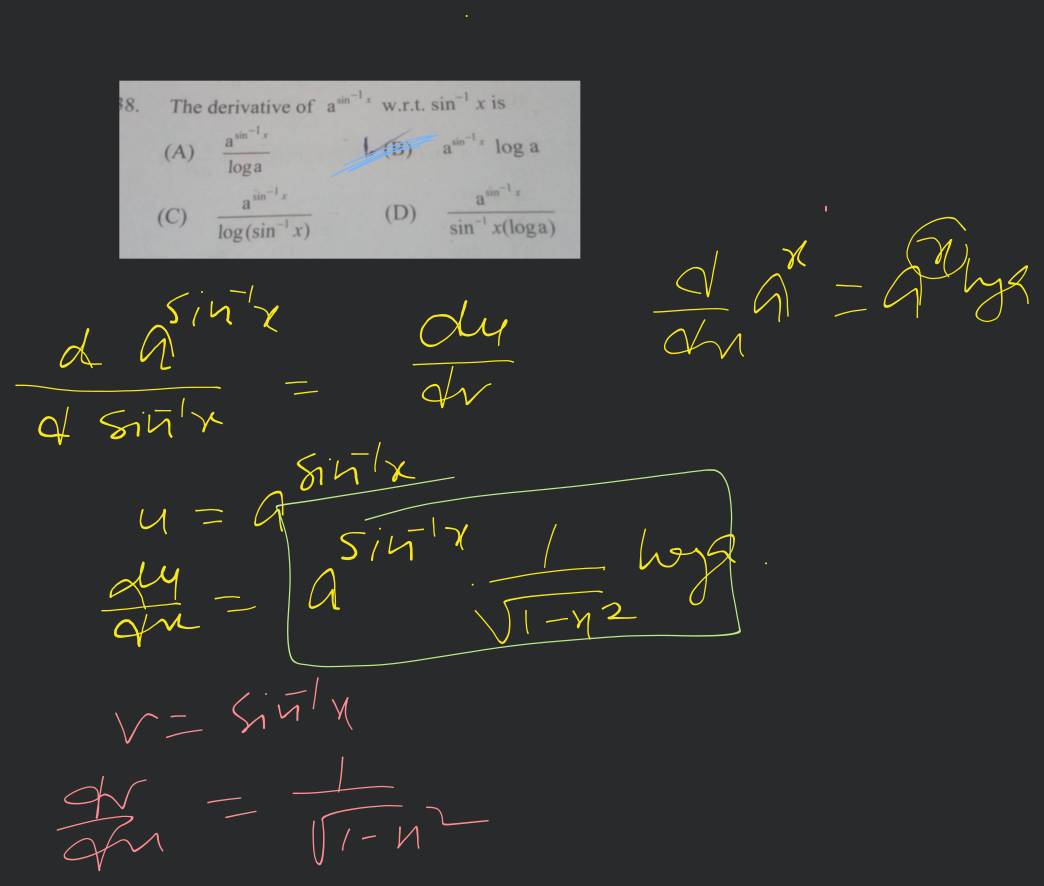 38. The derivative of a^(sin⁻¹ x) w.r.t. sin⁻¹ x is
(A) a^(sin⁻¹ x) / log a (B) a^(sin⁻¹ x) log a
(C) a^(sin⁻¹ x) / log(sin⁻¹ x) (D) a^(sin⁻¹ x) / sin⁻¹ x(log a)
d/dx a^x = a^x log a
d a^(sin⁻¹x) / d sin⁻¹x = du/dv
u = a^(sin⁻¹x)
du/dx = a^(sin⁻¹x) . 1/√(1-x²) log a .
v = sin⁻¹x
dv/dx = 1/√(1-x²)